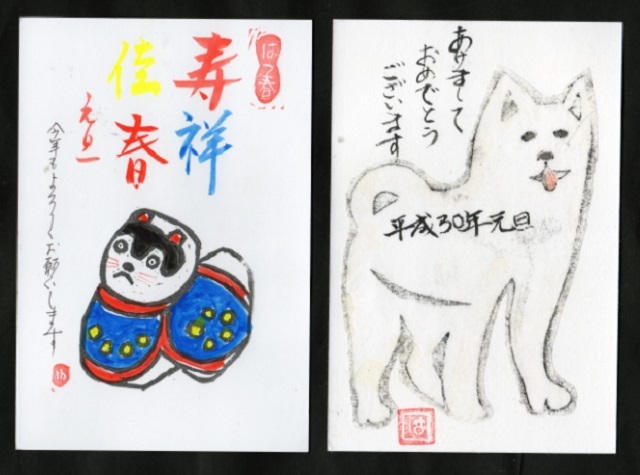 はつ春
寿祥
佳春
元旦
今年もよろしくお願いします
あけまして
おめでとう
ございます
平成30年元旦